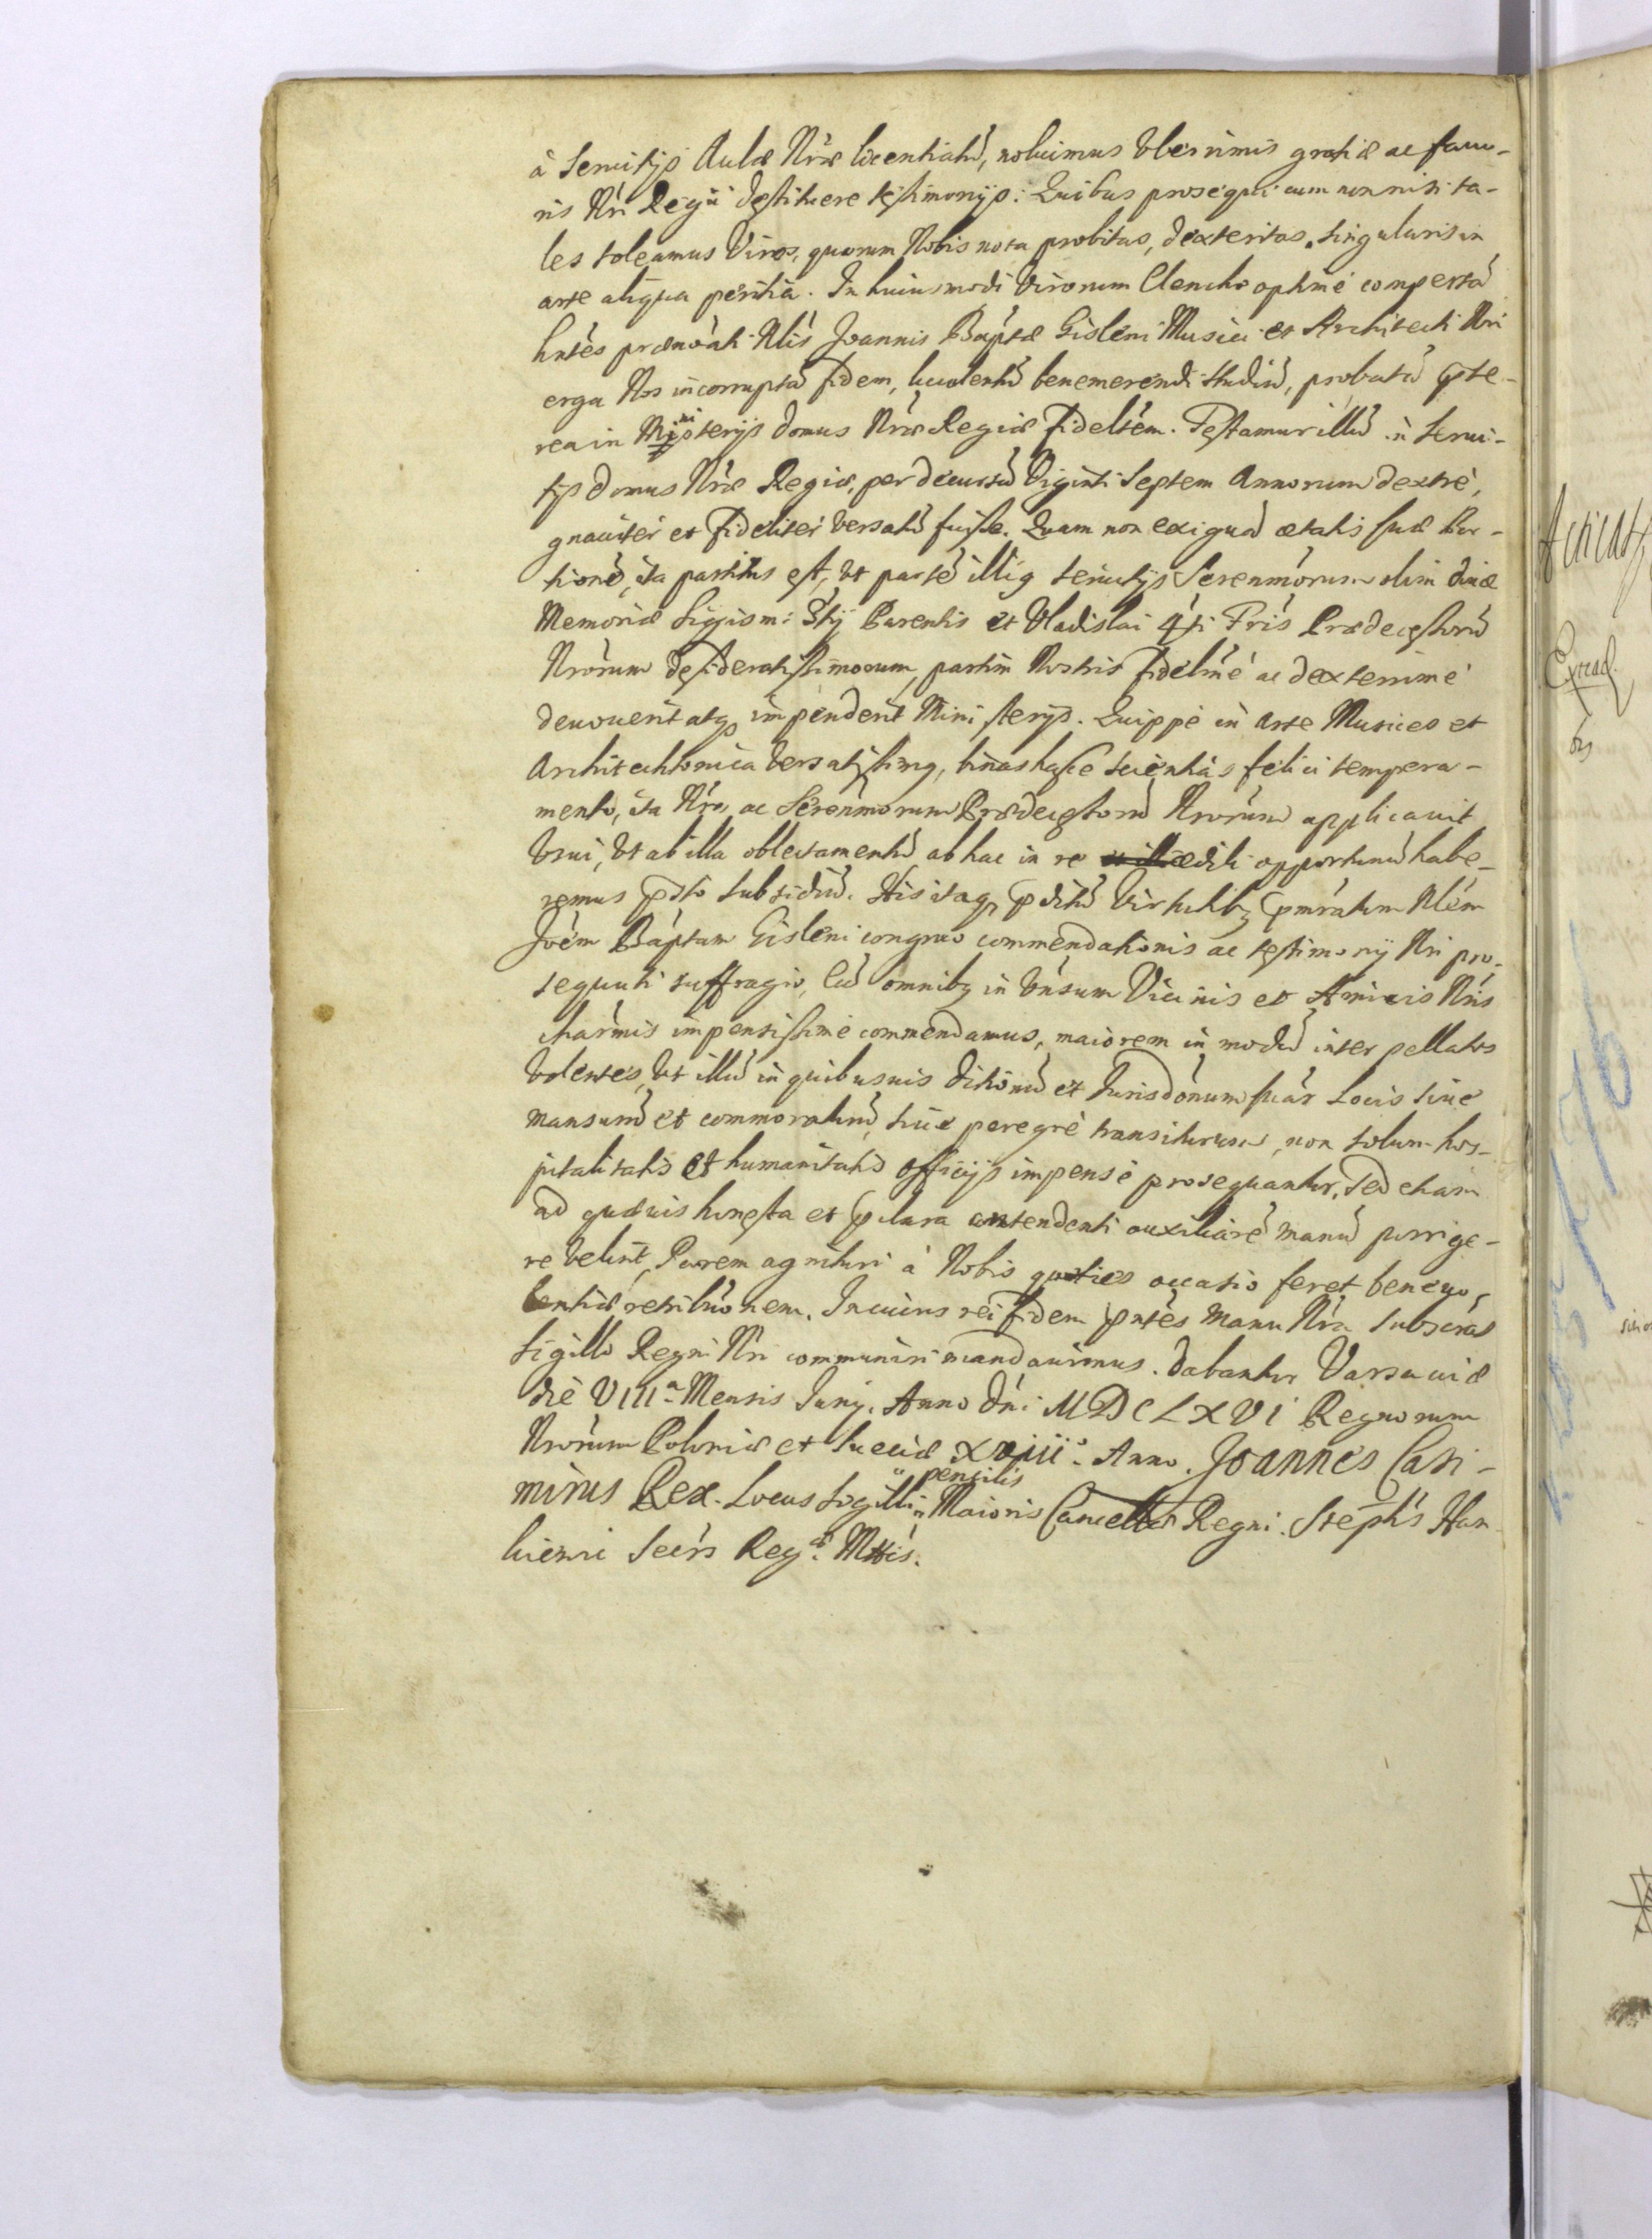 à Seruitijs Aulæ Nræ licentiatũ, noluimus Vberrimis gratiæ ac fauo-
ris Nri Regii destituere testimonijs: Quibus prosequi cum non nisi ta-
les soleamus Viros, quorum Nobis nota probitas, dexteritas, singularis in
arte aliqua peritia. In huiusmodi Vironum Elencho optimè compertã
hntès prænoãti Nlis Joannis Baptæ Gisleni Musici et Architecti Nri
erga Nos incorruptã fidem, luculentũ benemerendi studiũ, probatã pte-
rea in Ministerijs domus Nræ Regiæ fideltèm. Testamur illũ in Serui-
tijs domus Nræ Regiæ, per decursũ Viginti Septem Annorum dextrè,
gnauiter et Fideliter Versatũ fuisse. Quam non exiguã ætatis suæ Por-
tionẽ, ita partitus est, Vt partẽ illig seruitijs Serenmorum olim diuæ
Memoriæ Sigism: 3tij Parentis et Vladislai 4ti Fris Prædecessorũ
Nrorum desideratissimorum, partim Nostris fidelmè ac dexterrimè
deuouerit atq impenderit Ministerijs. Quippè in Arte Musices et
Architechtonica Versatissimg, binas hasce scientias felici tempera-
mento, ita Nro, ac Serenmorum Prædecessorũ Nrorum applicauit
Vsui, Vt ab illa oblectamentũ ab hac in re ædili opportunũ habe-
remus psto subsidiũ. His itaq pditũ Virtutibg pmratum Nlem
Joèm Baptam Gisleni congruo commendationis ac testimonij Nri pro-
sequuti suffragio, Eũ omnibg in Vnsum Vicinis et Amicis Nris
charmis impensissimè commendamus, maiorem in modũ interpellatos
Volentes, Vt illũ in quibusuis ditionũ et Jurisdonum suar Locis siue
mansurũ et commoraturũ, siue peregrè transiturum, non solum hos-
pitalitatis et humanitatis officijs impensè prosequantur, Sed etiam
ad quæuis honesta et pclara contendenti auxiliarẽ manũ porrige-
re Velint, Parem agnituri à Nobis quoties occasio feret beneuo-
lentiæ retribuonem. In cuius rei fidem pntes Manu Nra Subscras
Sigillo Regni Nri communiri mandauimus. Dabantur Varsauiæ
diè VIIIa Mensis Junij. Anno Dni MDCLXVI Regnorum
Nrorum Poloniæ et Sueciæ XVIII Anno. Joannes Casi-
mirus Rex. Locus Sigilli pensilis Maioris Cancellar Regni. Stephs Han
kieuic Secrs Regæ Mttis.